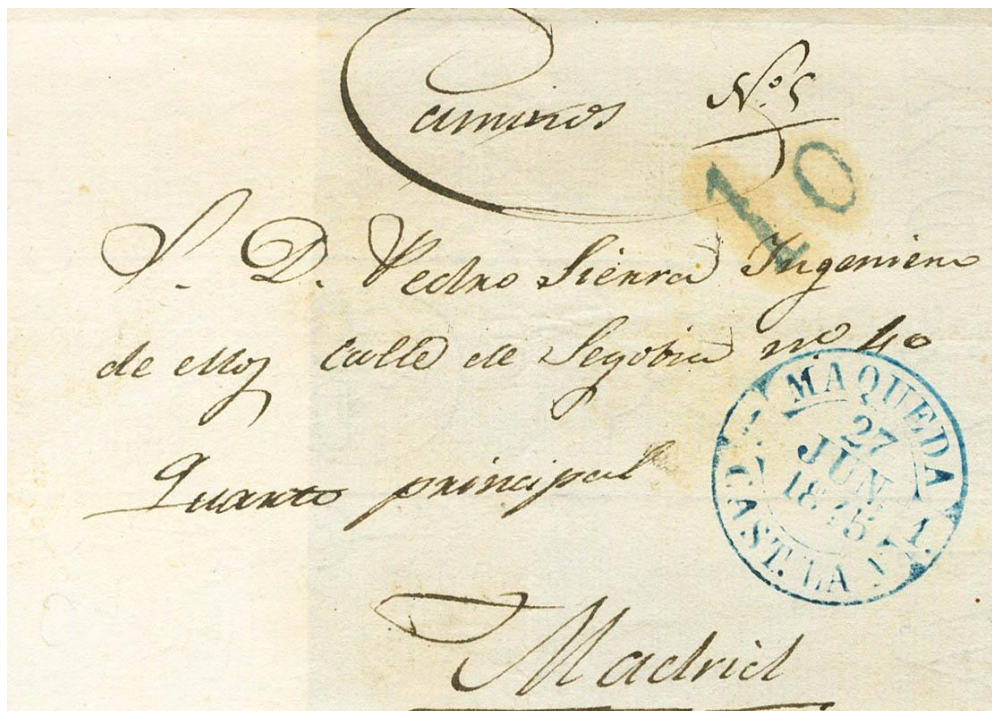 Caminos Nº 5
10
S. D. Pedro Sierra Ingeniero
de calle de Segobia nº 40
Quarto principal
Madrid
MAQUEDA
27
JUN
1845
1.
CAST. LA N.